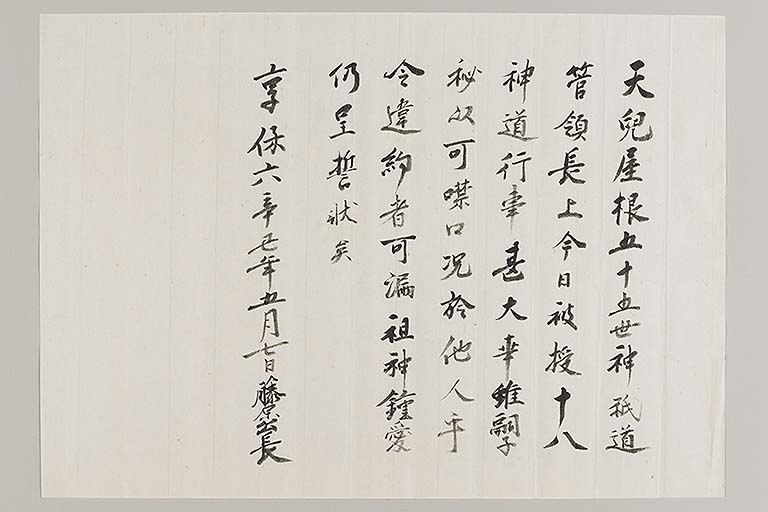 天兒屋根五十五世神祇道
管領長上今日被授十八
神道行事甚大事雖嗣子
秘而可噤口況於他人乎
令違約者可漏祖神鐘愛
仍呈誓状矣
享保六辛丑年五月七日藤公長